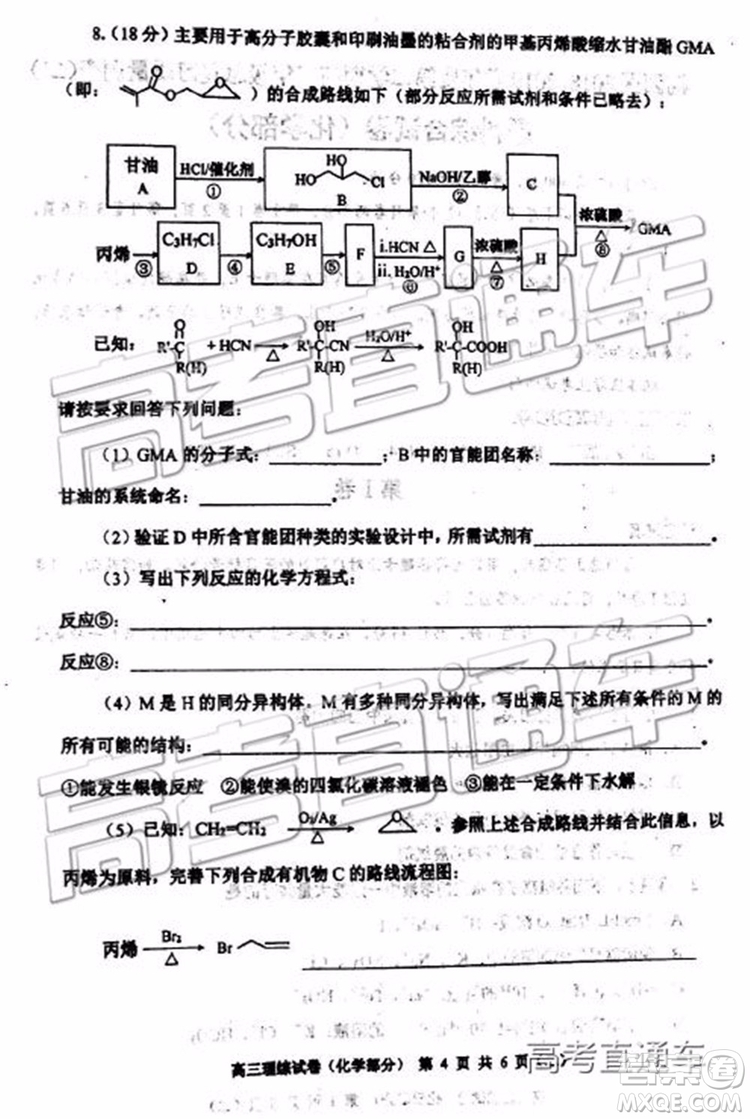 8.(18分)主要用于高分子胶囊和印刷油墨的粘合剂的甲基丙烯酸缩水甘油酯GMA
(即: O O O )的合成路线如下(部分反应所需试剂和条件已略去):
甘油 A HCl/催化剂 ① HO HO Cl B NaOH/乙醇 ② C
浓硫酸 △ ⑧ GMA
丙烯 ③ C3H7Cl D ④ C3H7OH E ⑤ F i.HCN △ ii.H2O/H+ ⑥ G 浓硫酸 △ ⑦ H
已知: R'-C R(H) O + HCN △ R'-C-CN OH R(H) H2O/H+ △ R'-C-COOH OH R(H)
请按要求回答下列问题:
(1)GMA的分子式:;B中的官能团名称:;
甘油的系统命名:。
(2)验证D中所含官能团种类的实验设计中,所需试剂有
(3)写出下列反应的化学方程式:
反应⑤:
反应⑧:
(4)M是H的同分异构体。M有多种同分异构体,写出满足下述所有条件的M的
所有可能的结构:
①能发生银镜反应 ②能使溴的四氯化碳溶液褪色 ③能在一定条件下水解
(5)已知:CH2=CH2 O2/Ag △ O 。参照上述合成路线并结合此信息,以
丙烯为原料,完善下列合成有机物C的路线流程图:
丙烯 Br2 △ Br
高三理综试卷(化学部分) 第4页共6页
高考直通车
高考直通车
高考直通车